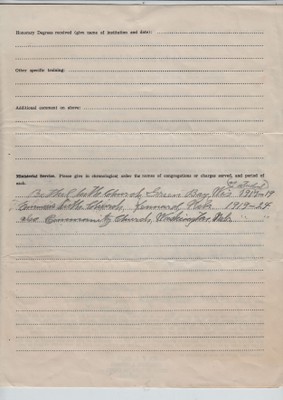 Honorary Degrees received (give name of institution and date):
Other specific training:
Additional comment on above:
Ministerial Service. Please give in chronological order the names of congregations or charges served, and period of
each.
Bethel Luth. Church, Green Bay, Wis. 1917-19
Luth. Church, Kennard Nebr. 1919-24
also Community Church, Washington, Nebr. " "